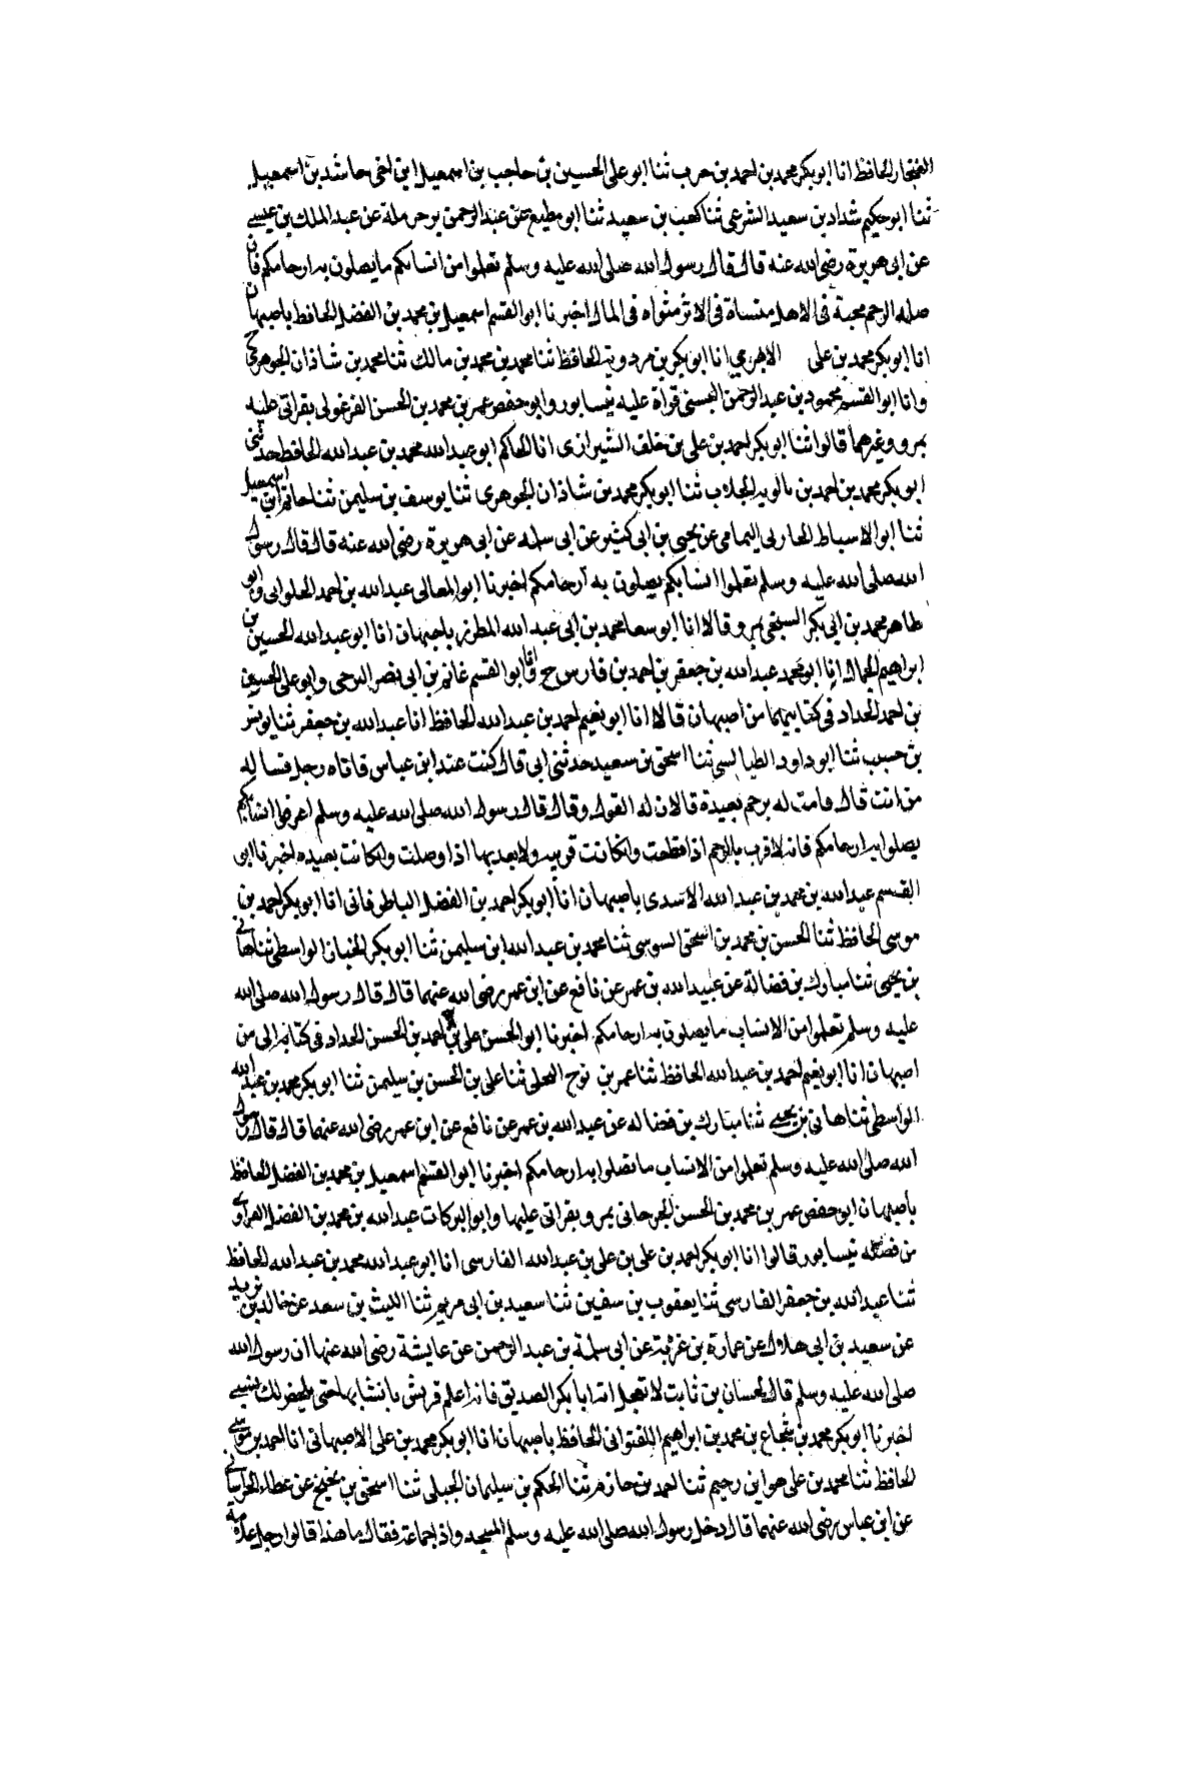 الغنجار الحافظ انا ابو بكر محمد بن احمد بن حرب ثنا ابو على الحسين بن حاجب بن اسمعيل ابن اخى حاشد بن اسمعيل
ثنا ابو حكيم شداد بن سعيد الشرعى ثنا كعب بن سعيد ثنا ابو مطيع عن عبد الرحمن بو حرملة عن عبد الملك بن عيسى
عن ابى هريرة رضى الله عنه قال قال رسول الله صلى الله عليه وسلم تعلموا من انسابكم ما يصلون به ارحامكم فان
صلة الرحم محبة فى الاهل منساة فى الاثر مثراه فى المال اخبرنا ابو القسم اسمعيل بن محمد بن الفضل الحافظ باصبهان
انا ابو بكر محمد بن على انا ابو بكر بن مردويه الحافظ ثنا محمد بن محمد بن مالك ثنا محمد بن شاذان الجوهرى ح
وانا ابو القسم محمود بن عبد الرحمن البستى قراة عليه بنيسابور وابو حفص عمر بن محمد بن الحسن الفرغولى بقراتى عليه
بمرو وغيرهما قالوا ثنا ابو بكر احمد بن على بن خلف الشيرازى انا الحاكم ابو عبد الله محمد بن عبد الله الحافظ حدثنى
ابو بكر محمد بن احمد بن بالويه الجلاب ثنا ابو بكر محمد بن شاذان الجوهرى ثنا يوسف بن سليمن ثنا حاتم ابن اسمعيل
ثنا ابو الاسباط الحارثى اليمامى عن يحيى بن ابى كثير عن ابى سلمه عن ابى هريرة رضى الله عنه قال قال رسول
الله صلى الله عليه وسلم تعلموا انسابكم يصلون به ارحامكم اخبرنا ابو المعالى عبد الله بن احمد الحلوانى وابو
طاهر محمد بن ابى بكر السبخى بمرو قالا انا ابو سعد محمد بن ابى عبد الله المطرز باصبهان انا ابو عبد الله الحسين بن
ابراهيم الجمال انا ابو محمد عبد الله بن جعفر بن احمد بن فارس ح وانا ابو القسم غانم بن ابى نصر البرجى وابو على الحسن
بن احمد الحداد فى كتابيهما من اصبهان قالا انا ابو نعيم احمد بن عبد الله الحافظ انا عبد الله بن جعفر ثنا يونس
بن حبيب ثنا ابو داود الطيالسى ثنا اسحق بن سعيد حدثنى ابى قال كنت عند ابن عباس فاتاه رجل فساله
من انت قال فامت له برحم بعيدة فالان له القول وقال قال رسول الله صلى الله عليه وسلم اعرفوا انسابكم
يصلوا به ارحامكم فانه لا قرب بالرحم اذا قطعت وان كانت قريبه ولا بعد بها اذا وصلت وان كانت بعيده اخبرنا ابو
القسم عبد الله بن محمد بن عبد الله الاسدى باصبهان انا ابو بكر احمد بن الفضل الباطرقانى انا ابو بكر احمد بن
موسى الحافظ ثنا الحسن بن محمد بن اسحق السوسى ثنا محمد بن عبد الله ابن سليمن ثنا ابو بكر الواسطى ثنا هانى
بن يحيى ثنا مبارك بن فضالة عن عبيد الله بن عمر عن نافع عن ابن عمر رضى الله عنهما قال قال رسول الله صلى الله
عليه وسلم تعلموا من الانساب ما يصلون به ارحامكم اخبرنا ابو الحسن على بن احمد بن الحسن الحداد فى كتابه الى من
اصبهان انا ابو نعيم احمد بن عبد الله الحافظ ثنا عمر بن نوح البجلى ثنا على بن الحسن بن سليمن ثنا ابو بكر محمد بن عبد الله
الواسطى ثنا هانى بن يحيى ثنا مبارك بن فضاله عن عبيد الله بن عمر عن نافع عن ابن عمر رضى الله عنهما قال قال رسول
الله صلى الله عليه وسلم تعلموا من الانساب ما تصلوا به ارحامكم اخبرنا ابو القسم اسمعيل بن محمد بن الفضل الحافظ
باصبهان ابو حفص عمر بن محمد بن الحسن الجرجانى بمرو بقراتى عليها وابو البركات عبد الله بن محمد بن الفضل الفراوى
من نيسابور قالوا انا ابو بكر احمد بن على بن على بن عبد الله الفارسى انا ابو عبد الله محمد بن عبد الله الحافظ
ثنا عبد الله بن جعفر الفارسى ثنا يعقوب بن سفين ثنا سعيد بن ابى مريم ثنا الليث بن سعد عن خالد بن يزيد
عن سعيد بن ابى هلال عن عمارة بن غزية عن ابى سلمة بن عبد الرحمن عن عايشة رضى الله عنها ان رسول الله
صلى الله عليه وسلم قال لحسان بن ثابت لا تعجل ات ابا بكر الصديق فانه اعلم قريش بانسابها حتى يلخص لك نسبى
اخبرنا ابو بكر محمد بن شجاع بن محمد بن ابراهيم اللفتوانى الحافظ باصبهان انا ابو بكر محمد بن على الاصبهانى انا احمد بن موسى
الحافظ ثنا محمد بن على هو ابن رحيم ثنا احمد بن حازم ثنا الحكم بن سليمان الجبلى ثنا اسحق بن نجيح عن عطاء الخراسانى
عن ابن عباس رضى الله عنهما قال دخل رسول الله صلى الله عليه وسلم المسجد واذ اجماعة فقال ما هذا قالوا رجل علامة